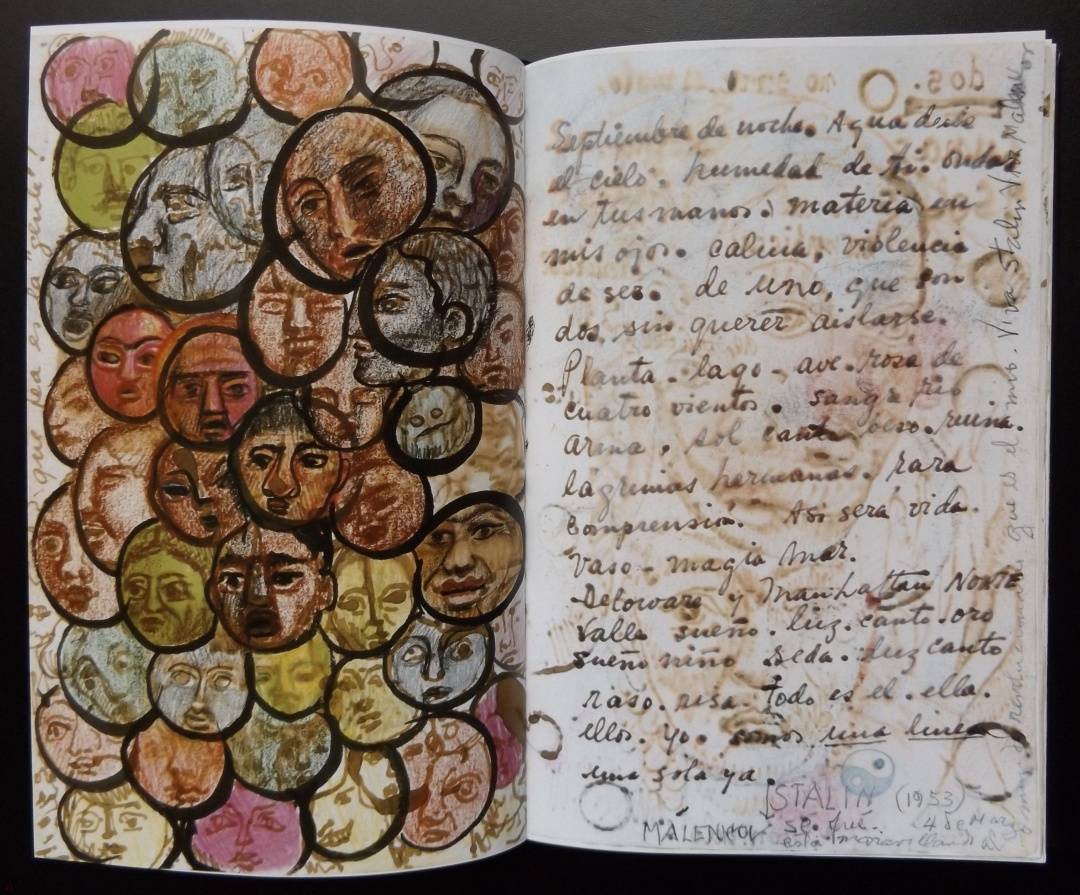 que será es la gente!
dos.
Septiembre de noche. Agua desde
el cielo. humedad de ti. ondas
en tus manos. materia en
mis ojos. calma, violencia
de ser. de uno, que son
dos, sin querer aislarse.
Planta - lago - ave. rosa de
cuatro vientos. sangre río
arma, sol canta beso. ruina.
lágrimas hermanas. rara
comprensión. Así será vida.
Vaso - magia Mar.
Delaware y Manhattan NORTE
Valle sueño. luz. canto. oro
sueño niño seda. luz canto
raso. risa. todo es el. ella.
ellos. yo. somos una linea
una sola ya.
STALIN (1953)
MALENKOV se fué. 4 de Mar
Viva Stalin Viva Malenkov